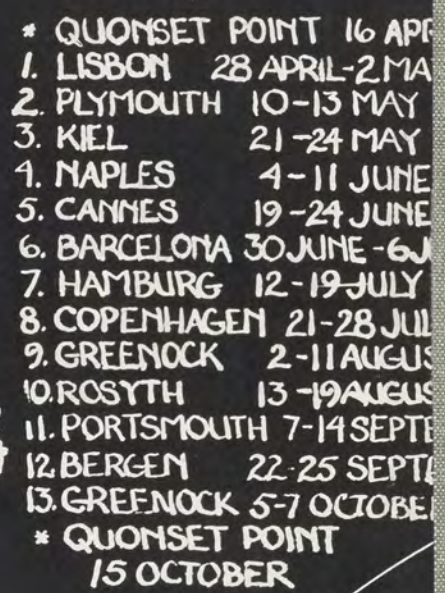 * QUONSET POINT 16 APR
1. LISBON 28 APRIL-2 MA
2. PLYMOUTH 10-13 MAY
3. KIEL 21-24 MAY
4. NAPLES 4-11 JUNE
5. CANNES 19-24 JUNE
6. BARCELONA 30 JUNE-6 J
7. HAMBURG 12-19 JULY
8. COPENHAGEN 21-28 JUL
9. GREENOCK 2-11 AUGUS
10. ROSYTH 13-19 AUGUS
11. PORTSMOUTH 7-14 SEPTE
12. BERGEN 22-25 SEPTE
13. GREENOCK 5-7 OCTOBER
* QUONSET POINT
15 OCTOBER